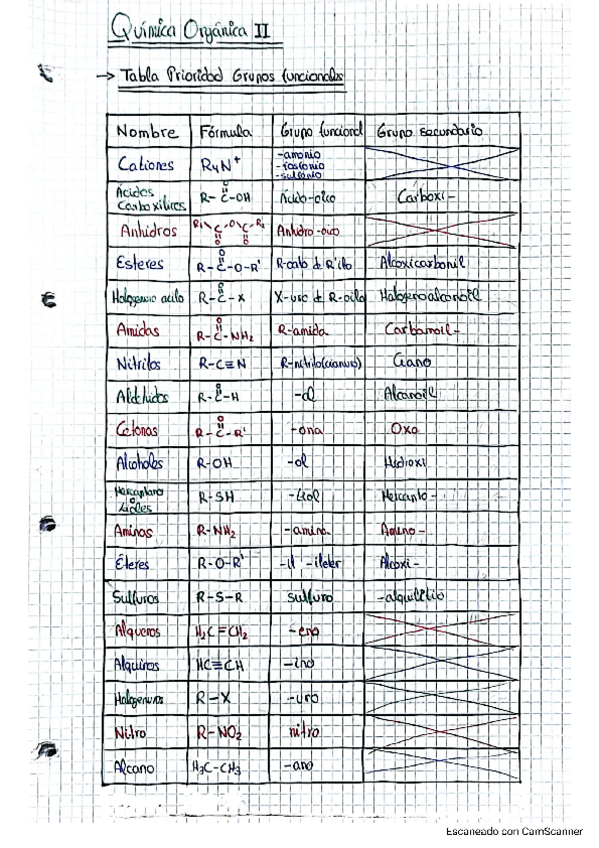 Química Orgánica II
→ Tabla Prioridad Grupos funcionales
Nombre Fórmula Grupo funcional Grupo secundario
Cationes R4N+ -amonio -fosfonio -sulfonio
Ácidos Carboxílicos R-C-OH O Ácido-oico Carboxi-
Anhidros R1 C O C R2 O O Anhidro-oico
Esteres R-C-O-R' O R-oato de R'ilo Alcoxicarbonil
Halogenuro acilo R-C-X O X-uro de R-oilo Halogenoalcanoil
Amidas R-C-NH2 O R-amida Carbamoil-
Nitrilos R-C≡N R-nitrilo(cianuro) Ciano
Aldehidos R-C-H O -al Alcanoil
Cetonas R-C-R' O -ona Oxo
Alcoholes R-OH -ol Hidroxi
Mercaptano o tioles R-SH -tiol Mercapto-
Aminas R-NH2 -amina Amino-
Éteres R-O-R' -il -ileter Alcoxi-
Sulfuros R-S-R sulfuro -alquiltio
Alquenos H2C=CH2 -eno
Alquinos HC≡CH -ino
Halogenuros R-X -uro
Nitro R-NO2 nitro
Alcano H3C-CH3 -ano
Escaneado con CamScanner